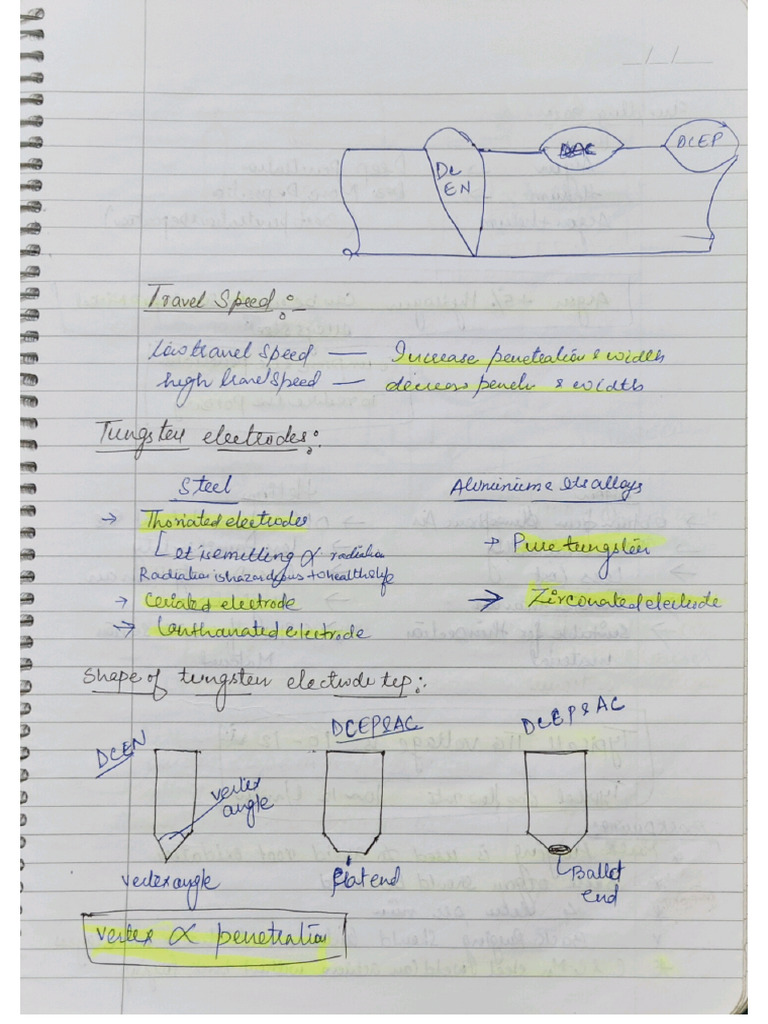 _/_/_
DC EN
AC
DCEP
Travel Speed:-
low travel speed — Increase penetration & width
high travel speed — decreas penetn & width
Tungsten electrodes:
Steel
Aluminium & Its alloys
→ Thoriated electrodes
→ Pure tungsten
[et is emitting α radiation
Radiation is hazardous to health & life
→ Ceriated electrode
→ Zirconated electrode
→ Lanthanated electrode
Shape of tungsten electrode tep:
DCEN
DCEP&AC
DCEP&AC
vertex angle
vertex angle
flat end
Balled end
vertex α penetration